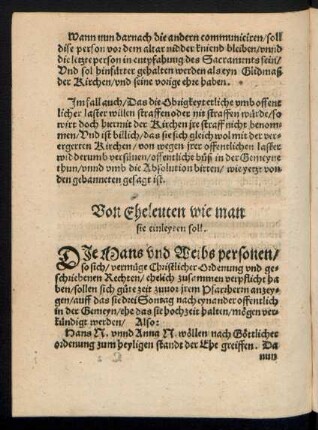 Wann nun darnach die andern communiciren/soll
dise person vor dem altar nidder kniend bleiben/vnnd
die letzte person in entpfahung des Sacraments sein/
Vnd sol hinfürter gehalten werden als eyn Glidmaß
der Kirchen/vnd seine vorige ehre haben.
Im fall auch/Das die Obrigkeyt erliche vmb offent
licher laster willen straffen oder nit straffen würde/so
wirt doch hiermit der Kirchen jre straff nicht benom
men/Vnd ist billich/das sie sich gleich wol mit der ver-
ergerten Kirchen/von wegen jrer offentlichen laster
widderumb versünen/offentliche büß in der Gemeyne
thun/vnnd vmb die Absolution bitten/wie yetzt von
den gebanneten gesagt ist.
Von Eheleuten wie man
sie einleyten soll.
DIe Mans vnd Weibs personen/
so sich/vermüge Christlicher Ordenung vnd ge-
schriebenen Rechten/ehelich zusammen verpflicht ha
ben/sollen sich gůte zeit zuuor jrem Pfarrherrn anzey-
gen/auff das sie drei Sontag nacheynander offentlich
in der Gemeyn/ehe das sie hochzeit halten/mögen ver-
kündigt werden/ Also:
Hans N. vnnd Anna N. wöllen nach Göttlicher
ordenung zum heyligen standt der Ehe greiffen. Da
nun